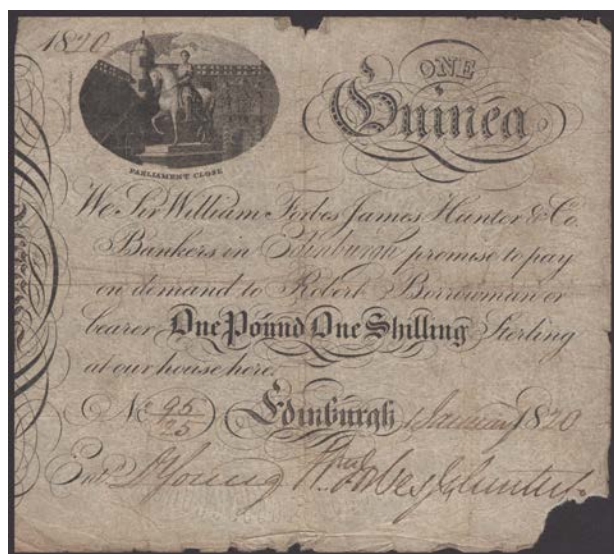 1820
ONE
Guinea
PARLIAMENT CLOSE
We Sir William Forbes James Hunter & Co.
Bankers in Edinburgh promise to pay
on demand to Robert Borrowman or
bearer One Pound One Shilling Sterling
at our house here.
No 95/25 Edinburgh 1 January 1820
Entd. Young Forbes J Hunter